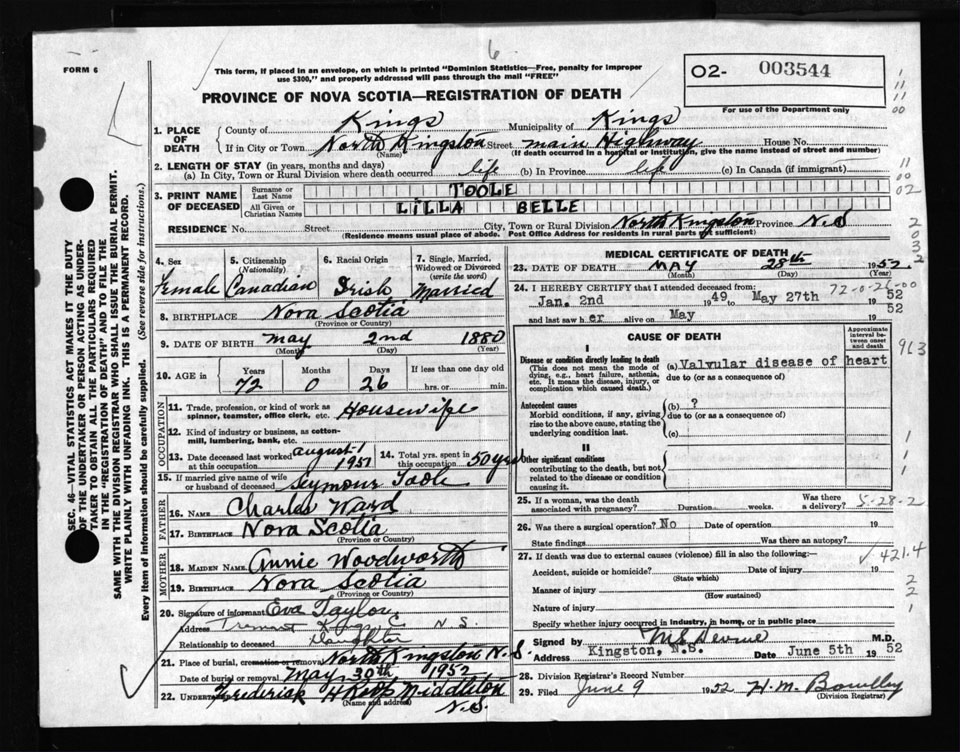 6
FORM 6
This form, if placed in an envelope, on which is printed "Dominion Statistics—Free, penalty for improper
use $300," and properly addressed will pass through the mail "FREE"
O2- 003544
For use of the Department only
PROVINCE OF NOVA SCOTIA—REGISTRATION OF DEATH
1. PLACE OF DEATH { County of Kings Municipality of Kings
If in City or Town North Kingston Street main Highway House No.
(Name) (If death occurred in a hospital or institution, give the name instead of street and number)
2. LENGTH OF STAY (in years, months and days)
(a) In City, Town or Rural Division where death occurred life (b) In Province life (c) In Canada (if immigrant)
3. PRINT NAME OF DECEASED { Surname or Last Name TOOLE
All Given or Christian Names LILLA BELLE
RESIDENCE No. Street City, Town or Rural Division North Kingston Province N.S
(Residence means usual place of abode. Post Office Address for residents in rural parts not sufficient)
4. Sex Female
5. Citizenship (Nationality) Canadian
6. Racial Origin Irish
7. Single, Married, Widowed or Divorced (write the word) Married
8. BIRTHPLACE Nova Scotia
(Province or Country)
9. DATE OF BIRTH May 2nd 1880
(Month) (Day) (Year)
10. AGE in { Years 72 Months 0 Days 26 If less than one day old
hrs. or min.
OCCUPATION
11. Trade, profession, or kind of work as spinner, teamster, office clerk, etc. Housewife
12. Kind of industry or business, as cotton-mill, lumbering, bank, etc.
13. Date deceased last worked at this occupation august-1 1951
14. Total yrs. spent in this occupation 50 yrs
15. If married give name of wife or husband of deceased Seymour Toole
FATHER
16. NAME Charles Ward
17. BIRTHPLACE Nova Scotia
(Province or Country)
MOTHER
18. MAIDEN NAME Annie Woodworth
19. BIRTHPLACE Nova Scotia
(Province or Country)
20. Signature of informant Eva Taylor
Address Tremont Kings C N.S.
Relationship to deceased Daughter
21. Place of burial, cremation or removal North Kingston N.S.
Date of burial or removal May 30th 1952
22. Undertaker Frederick H Middleton
(Name and address) N.S.
MEDICAL CERTIFICATE OF DEATH
23. DATE OF DEATH MAY 28th 1952
(Month) (Day) (Year)
24. I HEREBY CERTIFY that I attended deceased from: 72-0-26-00
Jan. 2nd 1949 to May 27th 1952
and last saw her alive on May 1952
CAUSE OF DEATH
Approximate interval between onset and death
I
Disease or condition directly leading to death
(This does not mean the mode of dying, e.g., heart failure, asthenia, etc. It means the disease, injury, or complication which caused death.)
(a) Valvular disease of heart
due to (or as a consequence of)
Antecedent causes
Morbid conditions, if any, giving rise to the above cause, stating the underlying condition last.
(b) ?
due to (or as a consequence of)
(c)
II
Other significant conditions
contributing to the death, but not related to the disease or condition causing it.
25. If a woman, was the death associated with pregnancy? Duration weeks. Was there a delivery? 5-28-2
26. Was there a surgical operation? No Date of operation 19
State findings Was there an autopsy?
27. If death was due to external causes (violence) fill in also the following:
Accident, suicide or homicide? Date of injury 19
(State which)
Manner of injury
(How sustained)
Nature of injury
Specify whether injury occurred in industry, in home, or in public place
Signed by M.D.
Address Kingston, N.S. Date June 5th 1952
28. Division Registrar's Record Number
29. Filed June 9 1952 H. M. Bowlby
(Division Registrar)
SEC. 46—VITAL STATISTICS ACT MAKES IT THE DUTY
OF THE UNDERTAKER OR PERSON ACTING AS UNDER-
TAKER TO OBTAIN ALL THE PARTICULARS REQUIRED
IN THE "REGISTRATION OF DEATH" AND TO FILE THE
SAME WITH THE DIVISION REGISTRAR WHO SHALL ISSUE THE BURIAL PERMIT.
WRITE PLAINLY WITH UNFADING INK. THIS IS A PERMANENT RECORD.
Every item of information should be carefully supplied. (See reverse side for instructions.)
11
11
00
11
00
02
2
0
3
2
963
1
1
1
421.4
2
2
1